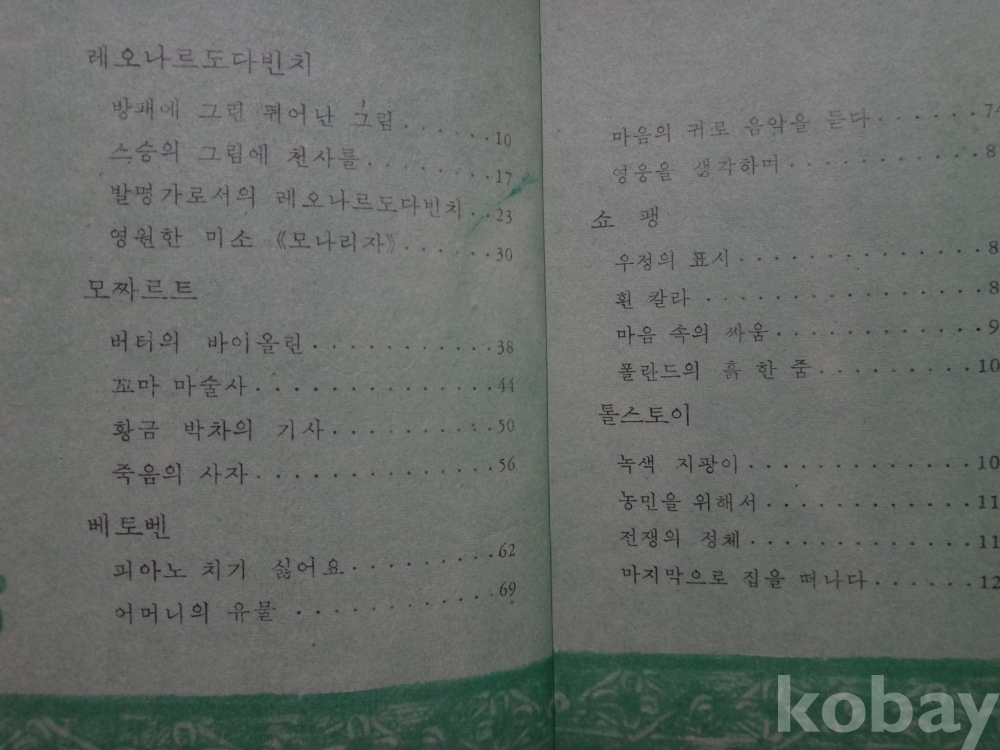 레오나르도다빈치
방패에 그린 뛰어난 그림 . . . . . . . . 10
스승의 그림에 천사를 . . . . . . . . . 17
발명가로서의 레오나르도다빈치 . . 23
영원한 미소 《모나리자》 . . . . . . 30
모짜르트
버터의 바이올린 . . . . . . . . . . . . 38
꼬마 마술사 . . . . . . . . . . . . . . . 44
황금 박차의 기사 . . . . . . . . . . . 50
죽음의 사자 . . . . . . . . . . . . . . . 56
베토벤
피아노 치기 싫어요 . . . . . . . . . . 62
어머니의 유물 . . . . . . . . . . . . . 69
마음의 귀로 음악을 듣다 . . . . . . . 7
영웅을 생각하며 . . . . . . . . . . . . 8
쇼 팽
우정의 표시 . . . . . . . . . . . . . . . 8
흰 칼라 . . . . . . . . . . . . . . . . . 8
마음 속의 싸움 . . . . . . . . . . . . . 9
폴란드의 흙 한 줌 . . . . . . . . . . . 10
톨스토이
녹색 지팡이 . . . . . . . . . . . . . . . 10
농민을 위해서 . . . . . . . . . . . . . 11
전쟁의 정체 . . . . . . . . . . . . . . . 11
마지막으로 집을 떠나다 . . . . . . . 12
kobay